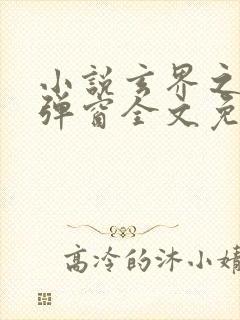 小说玄界之
弹窗全文免
高冷的沐小婧